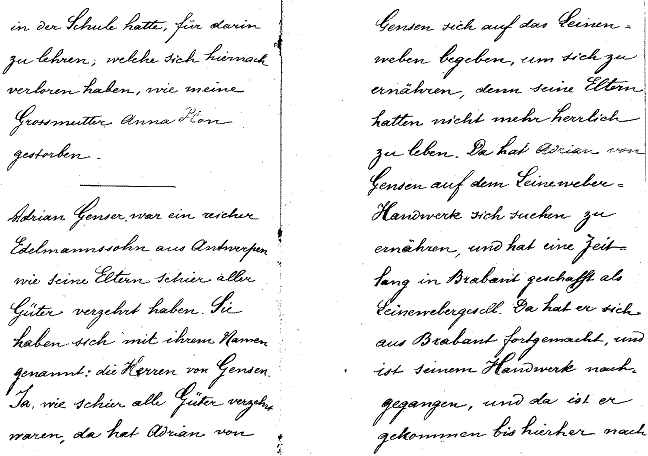 in der Schule hatte, für darin
zu lehren, welche sich hiernach
verloren haben, wie meine
Grossmutter Anna Kon
gestorben.
Adrian Genser war ein reicher
Edelmannssohn aus Antwerpen
wie seine Eltern schier aller
Güter verzehrt haben. Sie
haben sich mit ihrem Namen
genannt: die Herren von Gensen.
Ja, wie schier alle Güter verzehrt
waren, da hat Adrian von
Gensen sich auf das Leinen=
weben begeben, um sich zu
ernähren, denn seine Eltern
hatten nicht mehr herrlich
zu leben. Da hat Adrian von
Gensen auf dem Leineweber=
Handwerk sich suchen zu
ernähren, und hat eine Zeit=
lang in Brabant geschafft als
Leinewebergesell. Da hat er sich
aus Brabant fortgemacht, und
ist seinem Handwerk nach=
gegangen, und da ist er
gekommen bis hierher nach